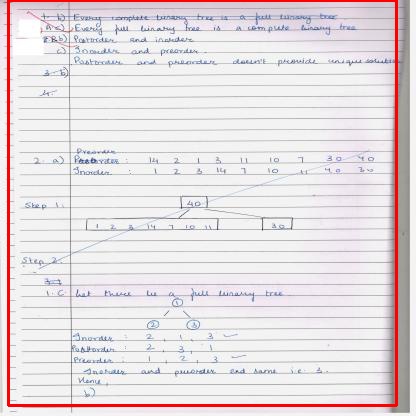 1. b) Every complete binary tree is a full binary tree.
A c) Every full binary tree is a complete binary tree
2. B b) Postorder and inorder
c) Inorder and preorder.
Postorder and preorder doesn't provide unique solution
3. b)
4.
Preorder
2. a) Postorder: 14 2 1 3 11 10 7 30 40
Inorder: 1 2 3 14 7 10 11 40 30
Step 1: 40
1 2 3 14 7 10 11 30
Step 2.
3.
1. C. Let there be a full binary tree.
1
2 3
Inorder: 2, 1, 3
Postorder: 2, 3, 1
Preorder: 1, 2, 3
Inorder and preorder end same i.e. 3.
Hence,
b)